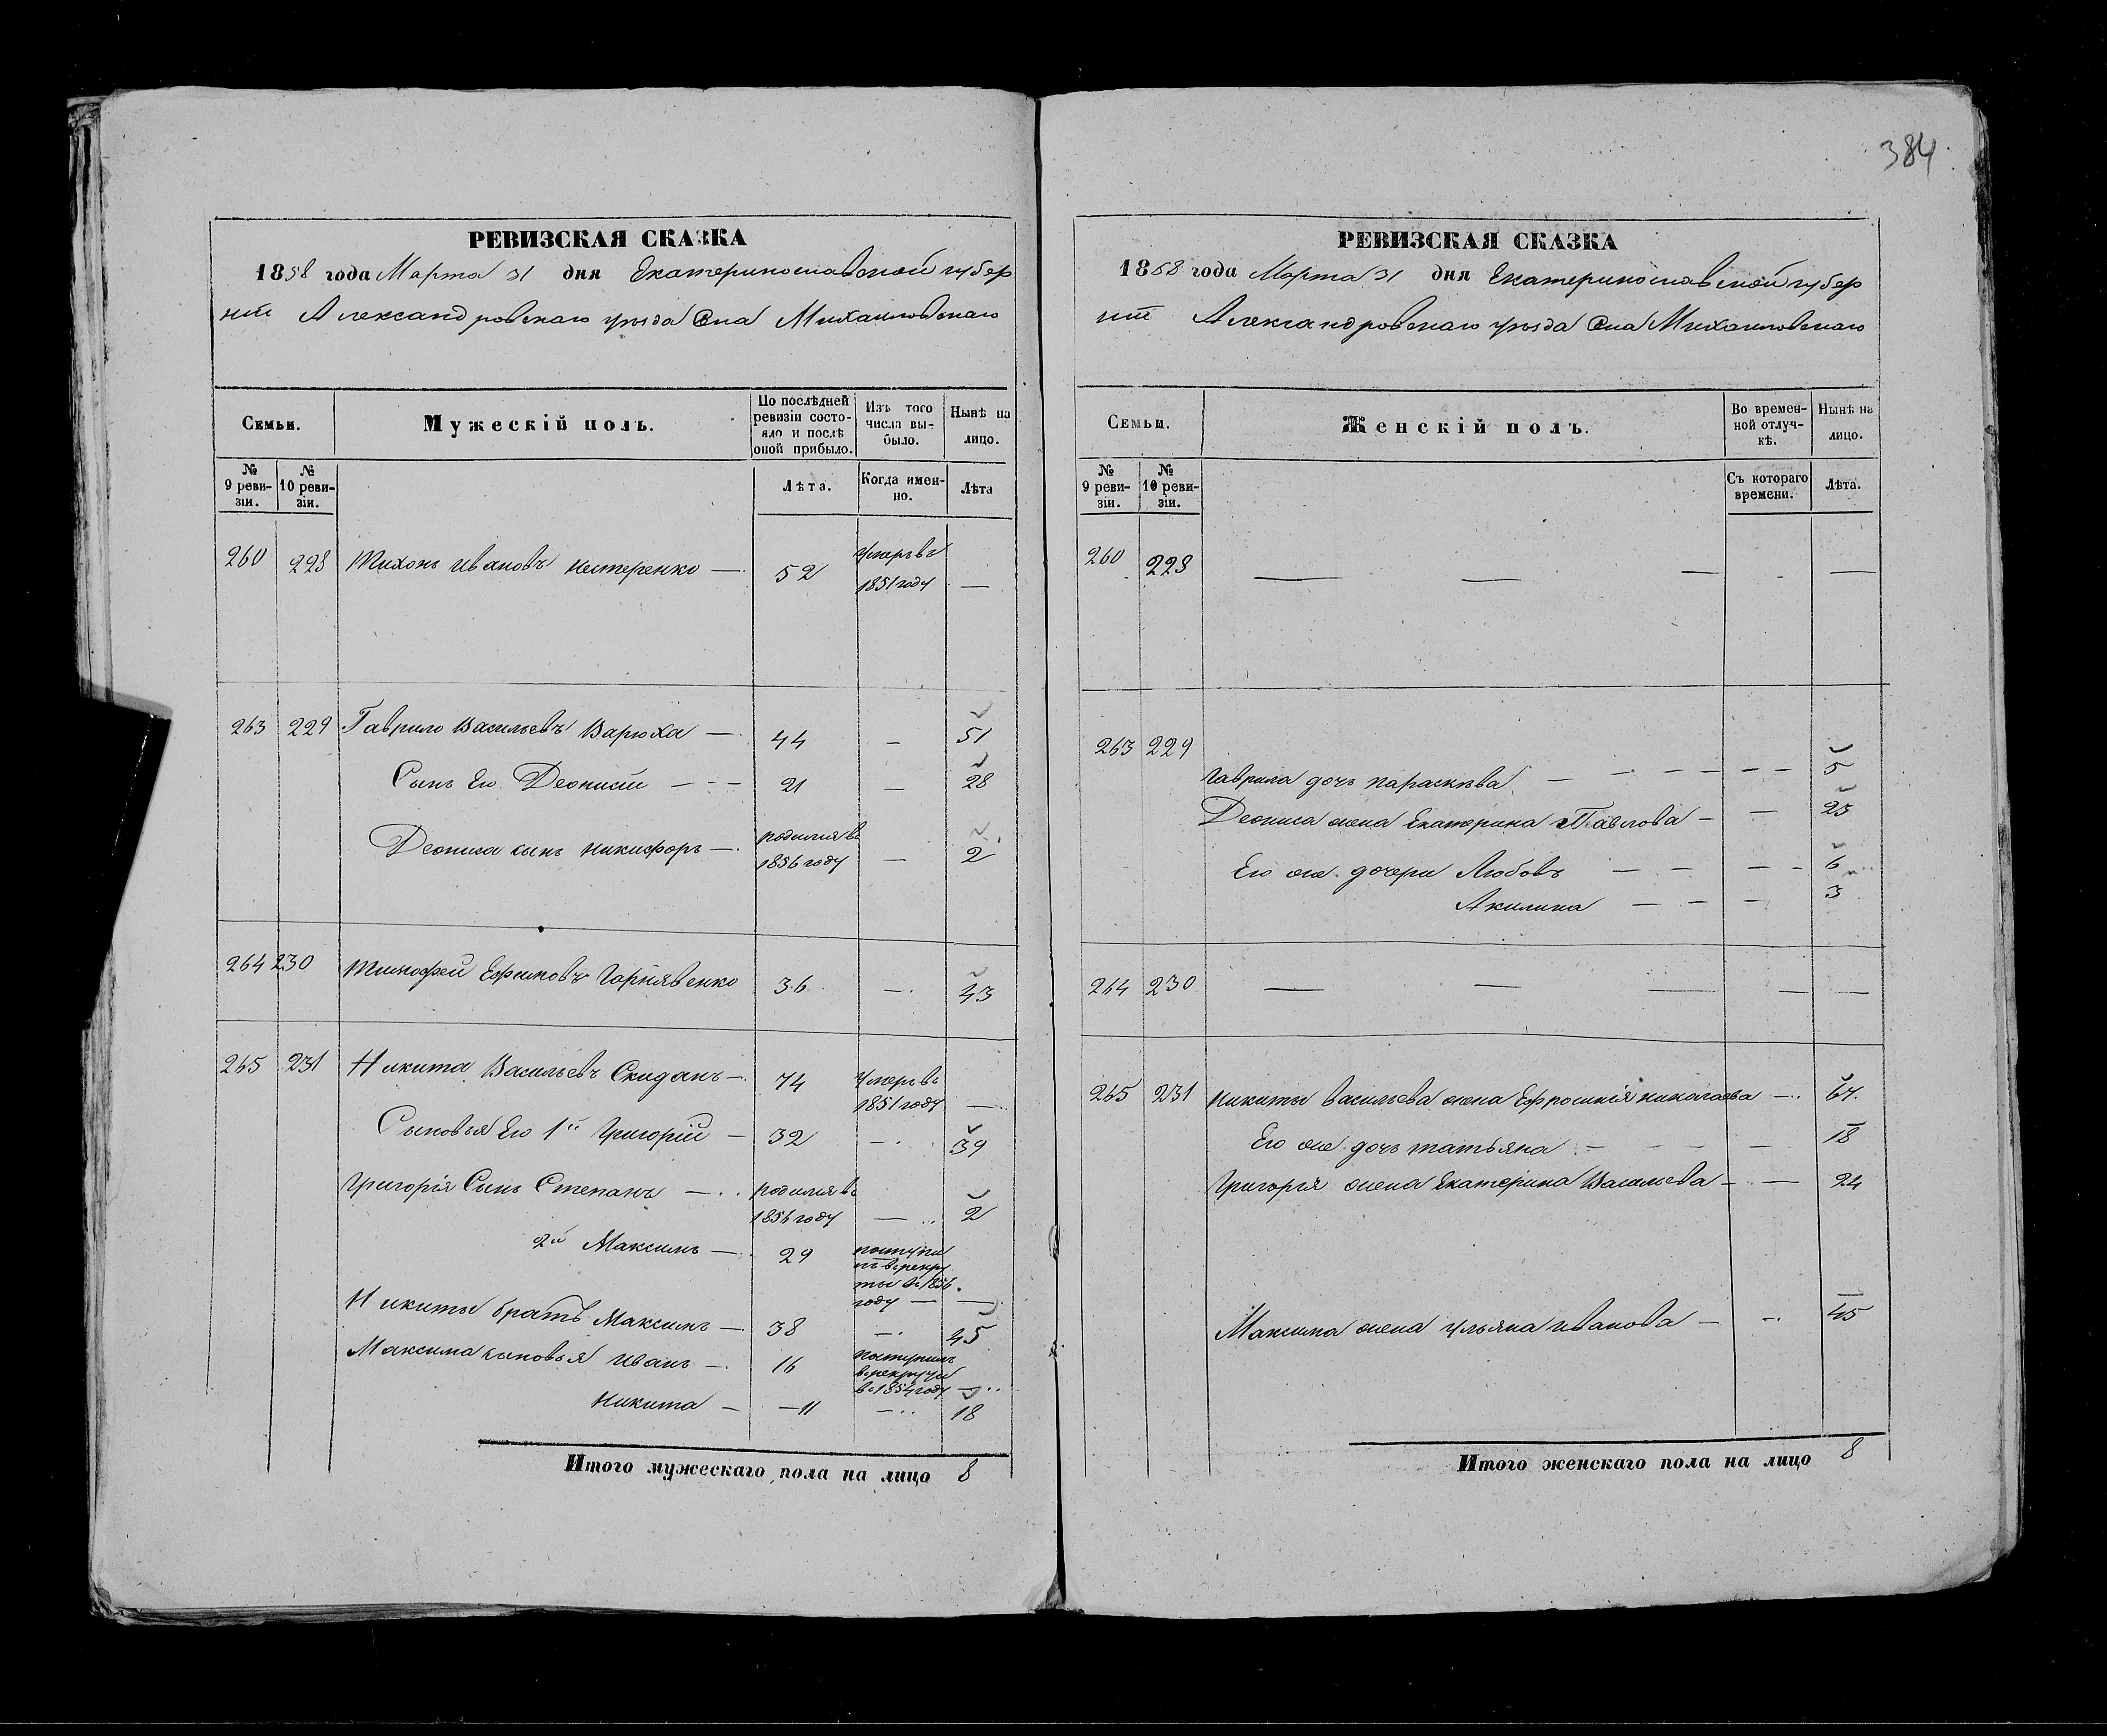 384
РЕВИЗСКАЯ СКАЗКА
1858 года Марта 31 дня Екатеринославской губер
нiи Александровскаго уѣзда Села Михаиловскаго
Семьи.
Мужескій полъ.
По послѣдней ревизіи состояло и послѣ оной прибыло.
Изъ того числа выбыло.
Нынѣ на лицо.
№ 9 ревизіи.
№ 10 ревизіи.
Лѣта.
Когда именно.
Лѣта
260 228 Тихонъ Ивановъ Нестеренко — 52 Умеръ въ 1851 году —
263 229 Гаврило Васильевъ Варюха — 44 — 51
Сынъ Его Деонисій — 21 — 28
Деониса сынъ Никифоръ — родился въ 1856 году — 2
264 230 Тимофей Ефимовъ 36 — 43
265 231 Никита Васильевъ Скиданъ — 74 Умеръ въ 1851 году —
Сыновья Его 1й Григорій — 32 — 39
Григорія Сынъ Степанъ — родился въ 1856 году — 2
2й Максимъ — 29 поступилъ в рекруты въ 1856 году — —
Никиты братъ Максимъ — 38 — 45
Максима сыновья Иванъ — 16 поступилъ в рекруты въ 1854 году —
Никита — 11 — 18
Итого мужескаго пола на лицо 8
РЕВИЗСКАЯ СКАЗКА
1858 года Марта 31 дня Екатеринославской губер
нiи Александровскаго уѣзда Села Михаиловскаго
Семьи.
Женскій полъ.
Во временной отлучкѣ.
Нынѣ на лицо.
№ 9 ревизіи.
№ 10 ревизіи.
Съ котораго времени.
Лѣта.
260 228 — — — —
263 229
Гаврила дочь Параскѣва — — 5
Деониса жена Екатерина Павлова — — 25
Его же дочери Любовь — — 6
Акилина — — 3
264 230 — — — — —
265 231 Никиты Васильева жена Ефросинія Николаева — 67
Его же дочь Татьяна — — 18
Григорія жена Екатерина Васильева — — 24
Максима жена Ульяна Иванова — — 45
Итого женскаго пола на лицо 8